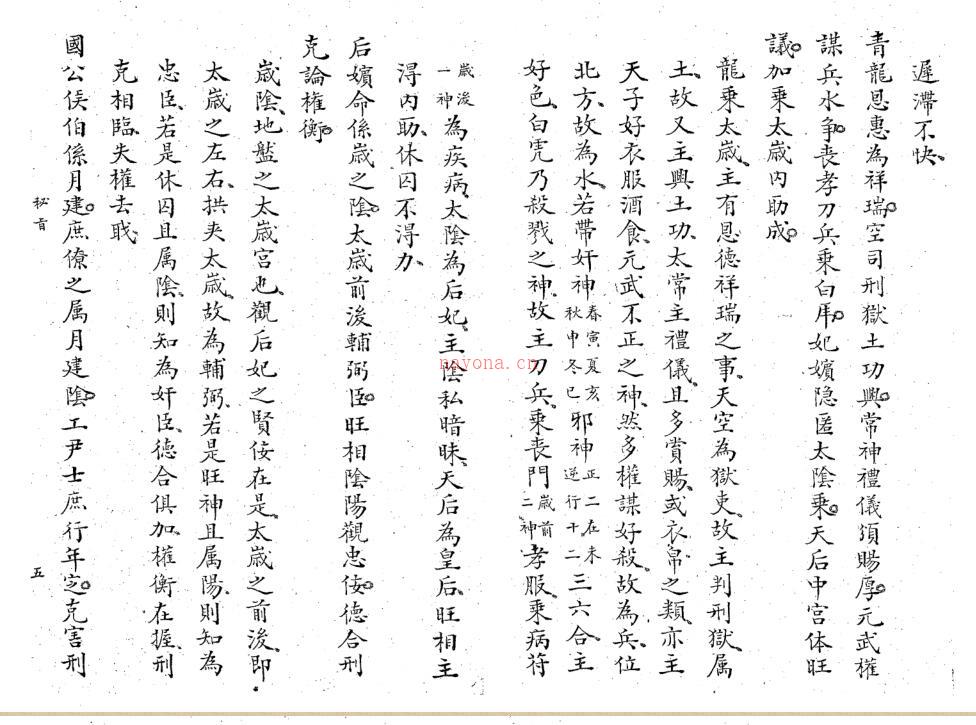 遲滯不快、
青龍恩惠為祥瑞。空司刑獄土功興。常神禮儀頒賜厚。元武權
謀兵水爭。喪孝刀兵乘白虎。妃嬪隐匿太陰乘。天后中宮体旺
議。加乘太歲内助成。
龍乘太歲、主有恩德祥瑞之事、天空為獄吏、故主判刑獄、属
土、故又主興土功、太常主禮儀、且多賞賜、或衣帛之類、亦主
天子好衣服酒食、元武不正之神、然多權謀好殺、故為兵、位
北方、故為水、若帶奸神春寅夏亥秋申冬巳邪神正二在未逆行十二三六合、主
好色、白虎乃殺戮之神、故主刀兵、乘喪門歲前二神孝服、乘病符
歲後一神為疾病、太陰為后妃、主陰私暗昧、天后為皇后、旺相主
淂内助、休囚不淂力、
后嬪命係歲之陰。太歲前後輔弼臣。旺相陰陽觀忠佞。德合刑
克論權衡。
歲陰、地盤之太歲宮也、觀后妃之賢佞在是、太歲之前後、即
太歲之左右、拱夹太歲、故為輔弼、若是旺神且属陽、則知為
忠臣、若是休囚且属陰、則知為奸臣、德合俱加、權衡在握、刑
克相臨、失權去职、
國公侯伯係月建。庶僚之属月建陰。工尹士庶行年定。克害刑
秘旨
五
nayona.cn